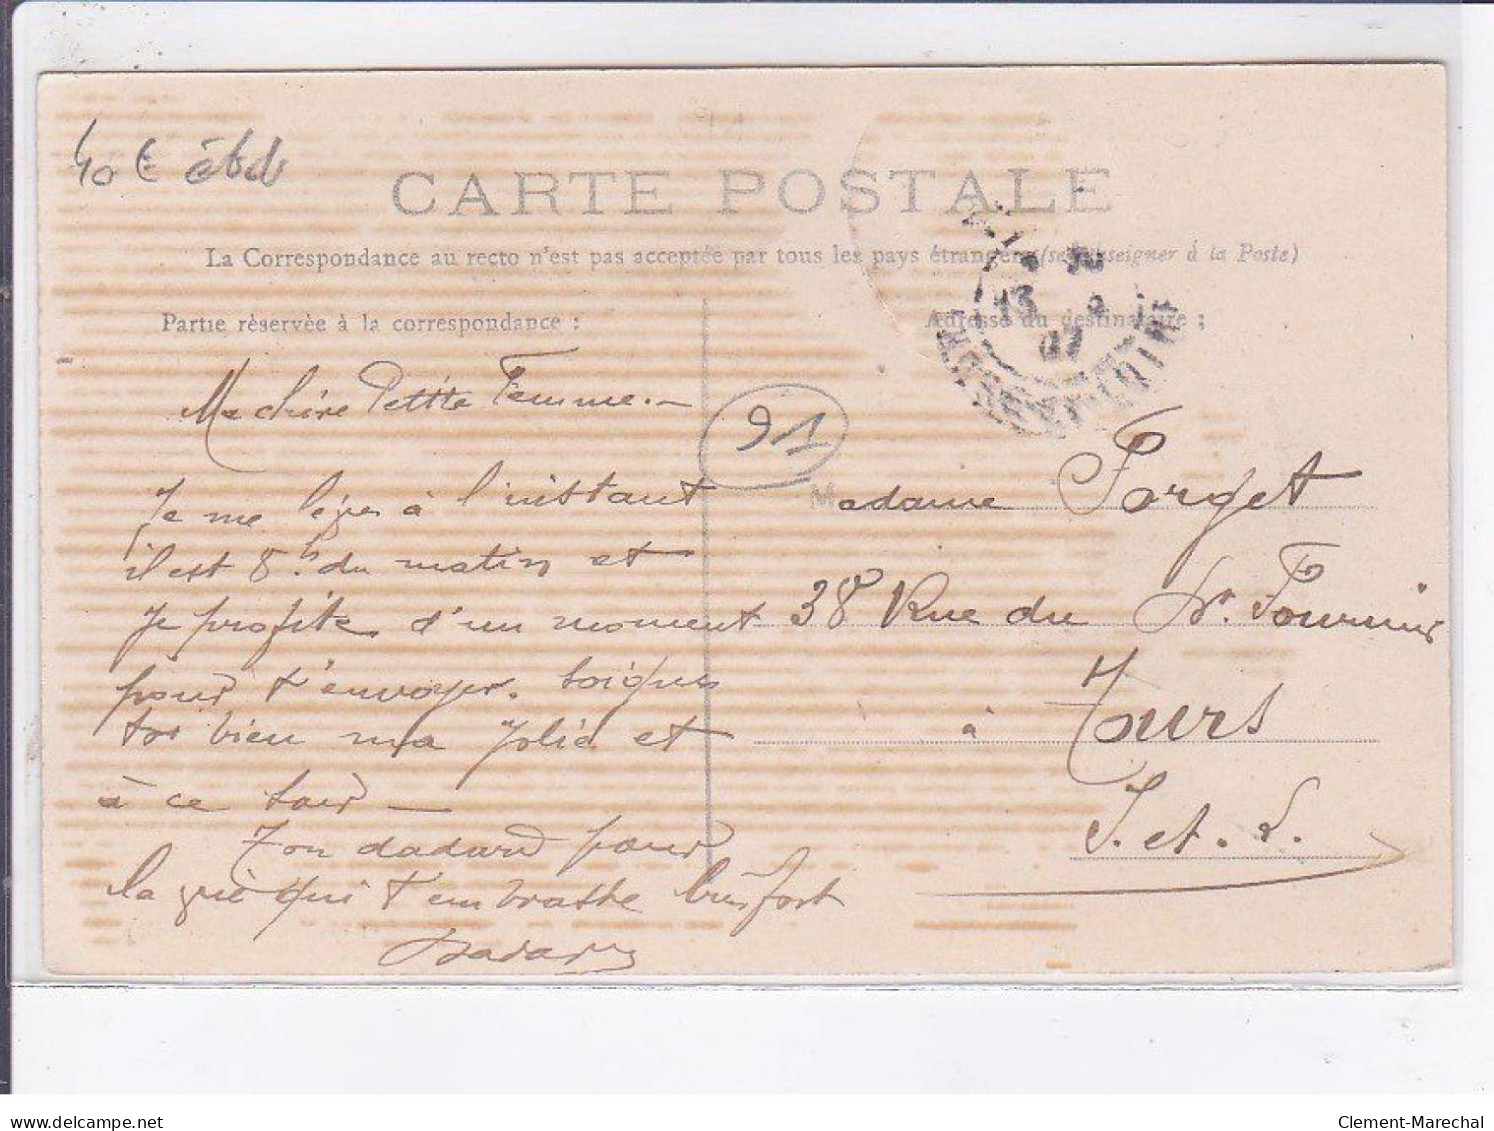 40 €
CARTE POSTALE
La Correspondance au recto n'est pas acceptée par tous les pays étrangers (se renseigner à la Poste)
Partie réservée à la correspondance :
Adresse du destinataire :
13
07
Ma chère Petite Femme. —
91
Je me lève à l'instant
il est 8 h. du matin et
je profite d'un moment
pour t'envoyer. soignes
toi bien ma Jolie et
à ce soir —
Ton dadard pour
la vie qui t'embrasse bien fort
Dadard
Madame Forget
38 Rue du Dr. Fournier
à Tours
I. et. L.
delcampe.net
Clement-Marechal